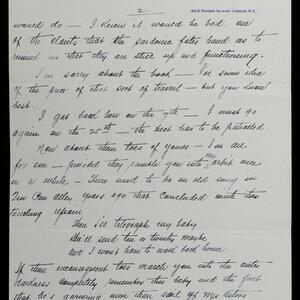 2
920 Rhode Island Avenue, N.E.
would do — I knew it would be bad. one
of the slants that the sardonic fates hand us to
remind us that they are still up and functioning.
I'm sorry about the book — I've some idea
of the price of that sort of travel — but you know
best.
I got back here on the 9th — I must go
again on the 25th — the beast has to be
Now about them toes of yours — I'm all
for em — provided they ramble you into my orbit once
in a while — There used to be an old song in
Tin Pan Alley years ago that concluded with this
touching refrain
Then I'll telegraph my baby
She'll send ten or twenty maybe
And I won't have to walk back home
If them toes march you into the outer
darkness completely remember this baby and the fact
that